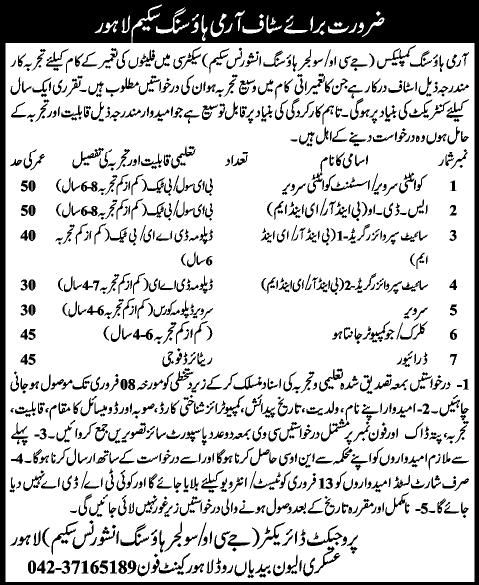 ضرورت برائے سٹاف آرمی ہاؤسنگ سکیم لاہور
آرمی ہاؤسنگ کمپلیکس (جے سی او/سولجر ہاؤسنگ انشورنس سکیم) سیکٹر سی میں فلیٹوں کی تعمیر کے کام کیلئے تجربہ کار
مندرجہ ذیل اسٹاف درکار ہے جن کا تعمیراتی کام میں وسیع تجربہ ہو ان کی درخواستیں مطلوب ہیں۔ تقرری ایک سال
کیلئے کنٹریکٹ کی بنیاد پر ہوگی۔ تاہم کارکردگی کی بنیاد پر قابل توسیع ہے جو امیدوار مندرجہ ذیل قابلیت اور تجربہ کے
حامل ہوں وہ درخواست دینے کے اہل ہیں۔
نمبر شمار اسامی کا نام تعداد تعلیمی قابلیت اور تجربہ کی تفصیل عمر کی حد
1 کوانٹٹی سرویر/اسسٹنٹ کوانٹٹی سرویر بی ای سول/بی ٹیک (کم از کم تجربہ 8-6 سال) 50
2 ایس۔ڈی۔او (بی اینڈ آر/ای اینڈ ایم) بی ای سول/بی ٹیک (کم از کم تجربہ 8-6 سال) 50
3 سائیٹ سپروائزر گریڈ-1 (بی اینڈ آر/ای اینڈ ڈپلومہ ڈی اے ای/بی ٹیک (کم از کم تجربہ 40
ایم) 6 سال)
4 سائیٹ سپروائزر گریڈ-2 (بی اینڈ آر/ای اینڈ ایم) ڈپلومہ ڈی اے ای (کم از کم تجربہ 7-4 سال) 30
5 سرویر سرویر ڈپلومہ کورس (کم از کم تجربہ 6-4 سال) 30
6 کلرک/جو کمپیوٹر جانتا ہو (کم از کم تجربہ 6-4 سال) 45
7 ڈرائیور ریٹائرڈ فوجی 45
1- درخواستیں بمعہ تصدیق شدہ تعلیمی و تجربہ کی اسناد منسلک کر کے زیر دستخطی کو مورخہ 08 فروری تک موصول ہو جانی
چاہئیں۔ 2- امیدوار اپنے نام، ولدیت، تاریخ پیدائش، کمپیوٹرائز شناختی کارڈ، صوبہ اور ڈومیسائل کا مقام، قابلیت،
تجربہ، پتہ ڈاک اور فون نمبر پر مشتمل درخواستیں سی وی بمعہ دو عدد پاسپورٹ سائز تصویریں جمع کروائیں۔ 3- پہلے
سے ملازم امیدواروں کو اپنے محکمہ سے این او سی حاصل کرنا ہوگا اور اسے درخواست کے ساتھ ارسال کرنا ہوگا۔ 4-
صرف شارٹ لسٹڈ امیدواروں کو 13 فروری کو ٹیسٹ/انٹرویو کیلئے بلایا جائے گا اور کوئی ٹی اے/ڈی اے نہیں دیا
جائے گا۔ 5- نامکمل اور مقررہ تاریخ کے بعد وصول ہونے والی درخواستیں زیر غور نہیں لائی جائیں گی۔
پروجیکٹ ڈائریکٹر (جے سی او/سولجر ہاؤسنگ انشورنس سکیم) لاہور
عسکری الیون بیدیاں روڈ لاہور کینٹ فون 042-37165189